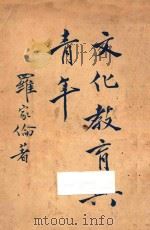 文化教育
青年
羅家倫著